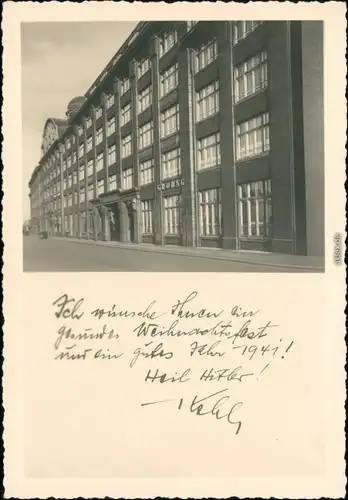 GRUHAG
Ich wünsche Ihnen ein
gesundes Weihnachtsfest
und ein gutes Jahr 1941!
Heil Hitler!